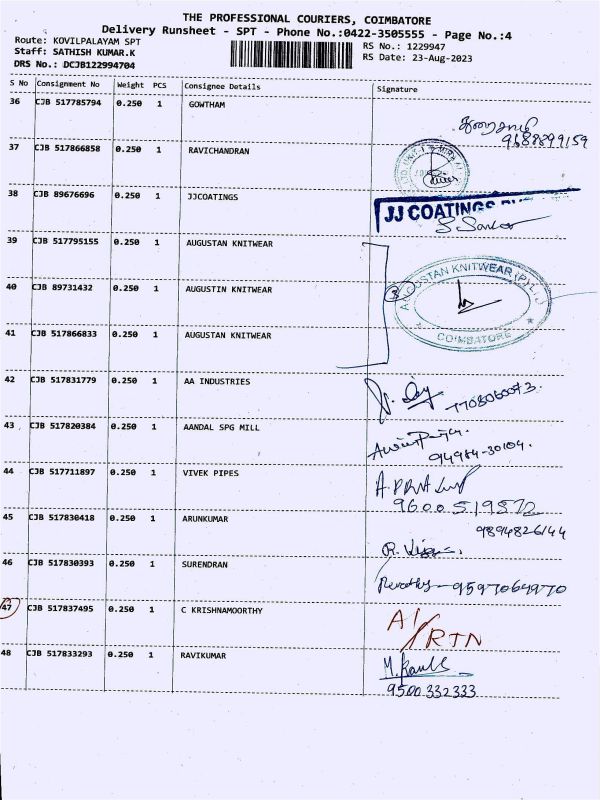 THE PROFESSIONAL COURIERS, COIMBATORE
Delivery Runsheet - SPT - Phone No.:0422-3505555 - Page No.:4
Route: KOVILPALAYAM SPT
RS No.: 1229947
Staff: SATHISH KUMAR.K
RS Date: 23-Aug-2023
DRS No.: DCJB122994704
S No Consignment No Weight PCS Consignee Details Signature
36 CJB 517785794 0.250 1 GOWTHAM
9688899159
37 CJB 517866858 0.250 1 RAVICHANDRAN
38 CJB 89676696 0.250 1 JJCOATINGS
JJ COATINGS
39 CJB 517795155 0.250 1 AUGUSTAN KNITWEAR
40 CJB 89731432 0.250 1 AUGUSTIN KNITWEAR
3
AUGUSTAN KNITWEAR (P) LTD
COIMBATORE
41 CJB 517866833 0.250 1 AUGUSTAN KNITWEAR
42 CJB 517831779 0.250 1 AA INDUSTRIES
43 CJB 517820384 0.250 1 AANDAL SPG MILL
94984-30104.
44 CJB 517711897 0.250 1 VIVEK PIPES
9600519872
45 CJB 517830418 0.250 1 ARUNKUMAR
9894826144
46 CJB 517830393 0.250 1 SURENDRAN
9597064970
47 CJB 517837495 0.250 1 C KRISHNAMOORTHY
A/RTN
48 CJB 517833293 0.250 1 RAVIKUMAR
9500332333